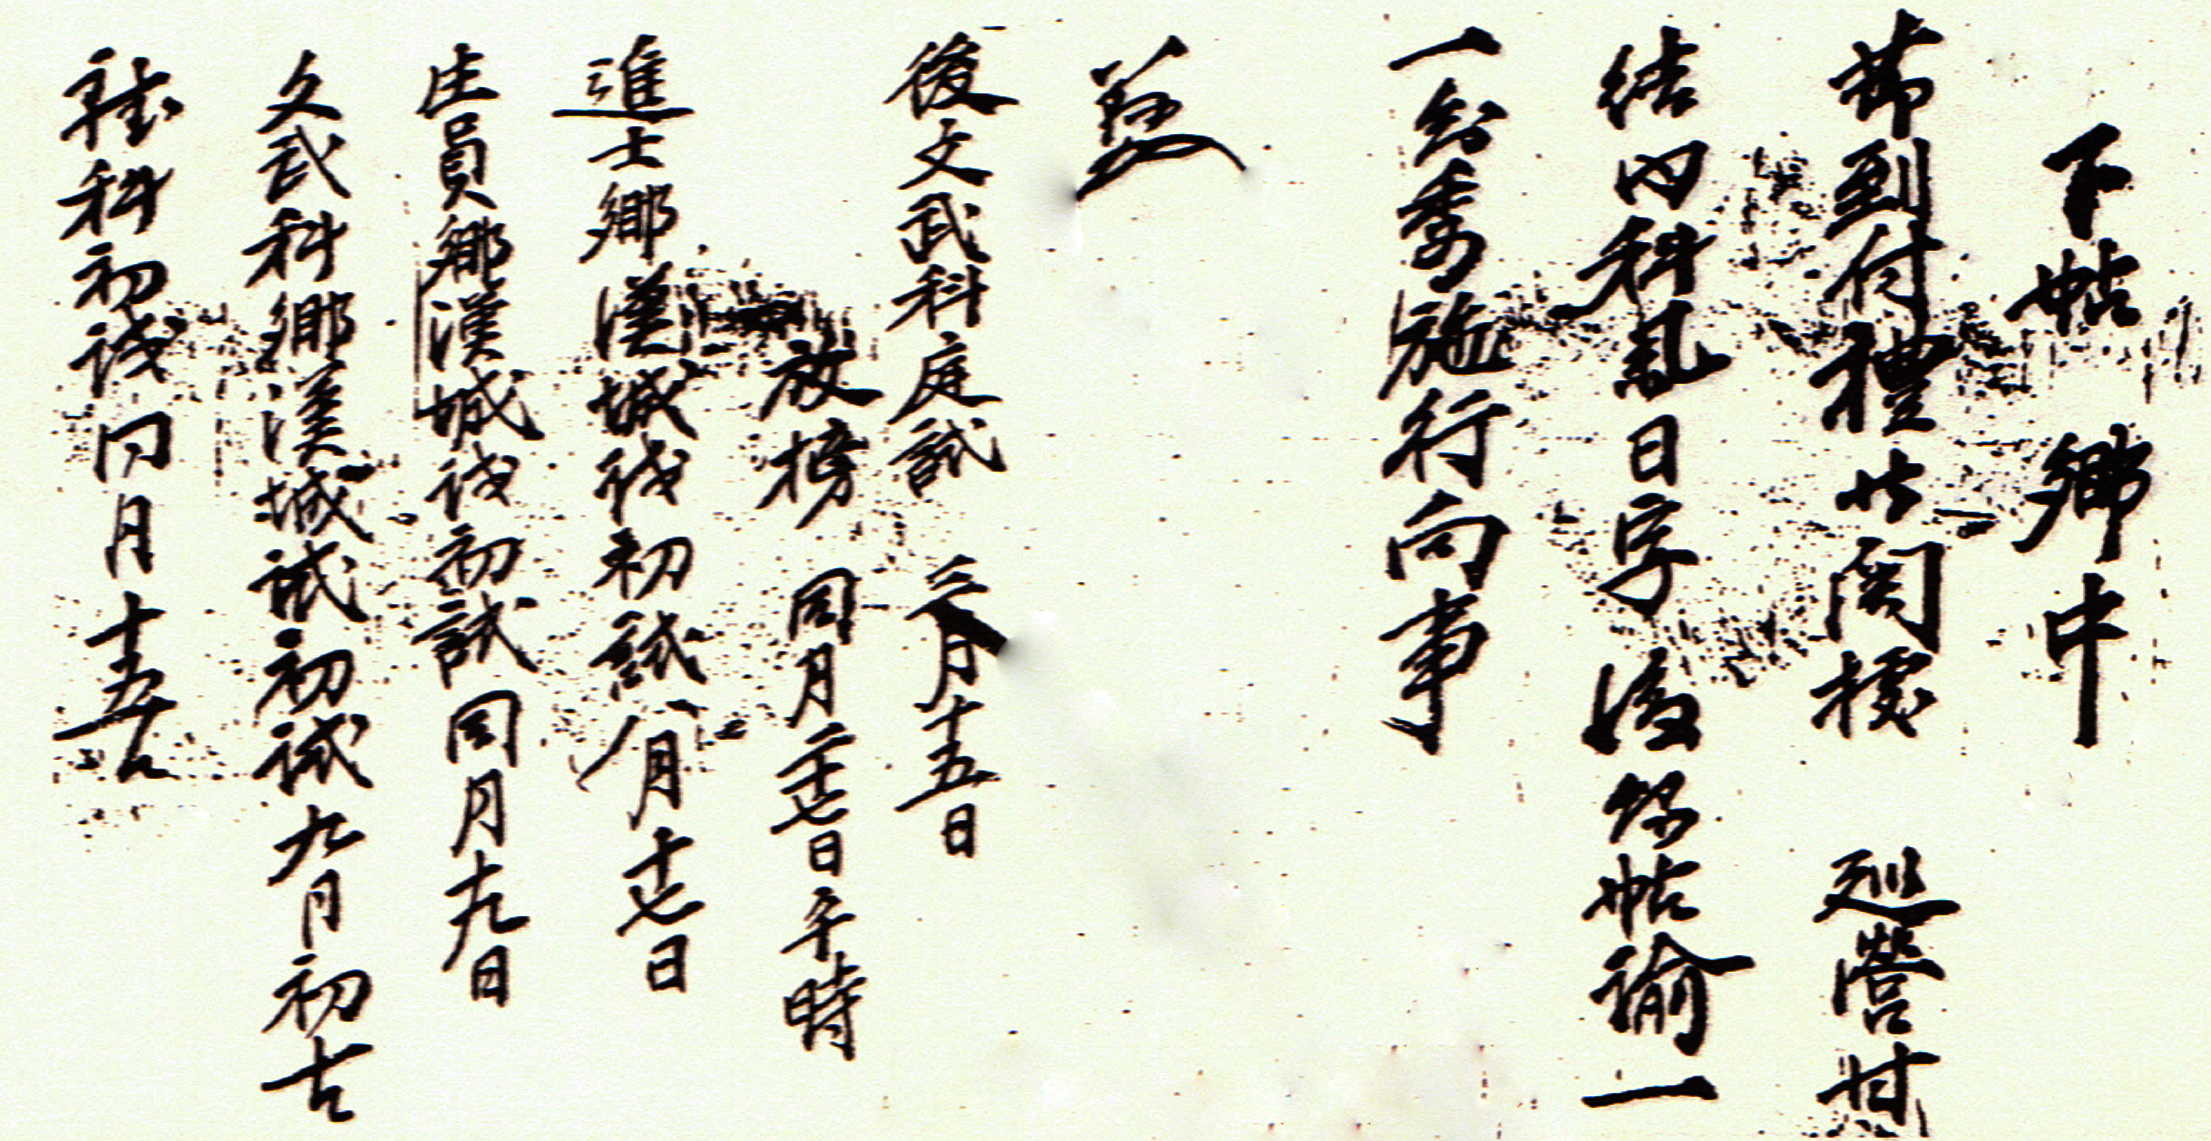 下帖 鄕中
節到付禮曹關據 巡營甘
結內科日字後錄帖諭一
一知委施行向事
後文武科庭試 三月十五日
放榜 同月二十七日午時
進士鄕漢城試初試八月十七日
生員鄕漢城試初試同月十九日
文武科鄕漢城試初試九月初吉
雜科初試同月十五日